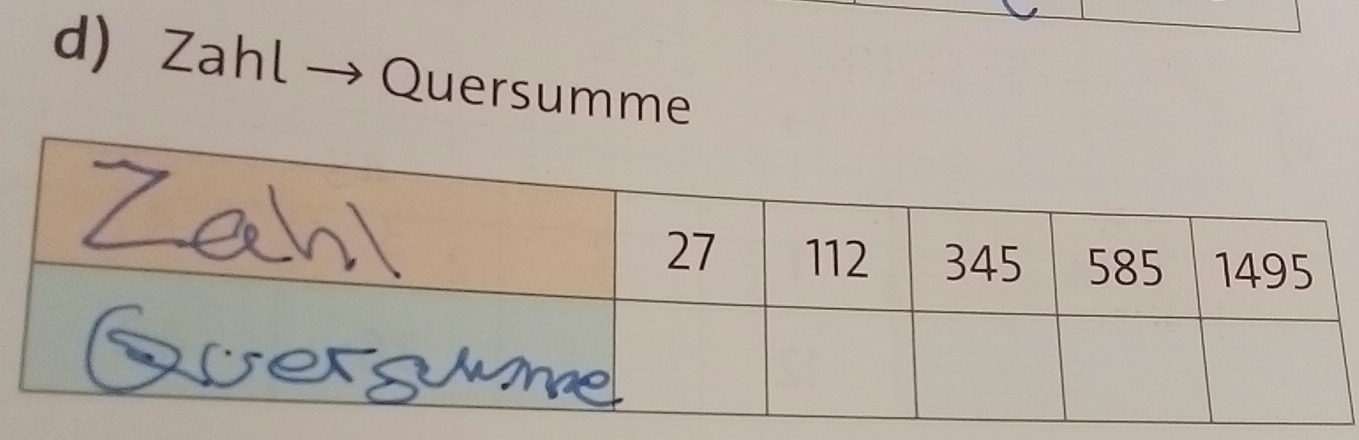 d) Zahl → Quersumme
Zahl 27 112 345 585 1495
Quersumme